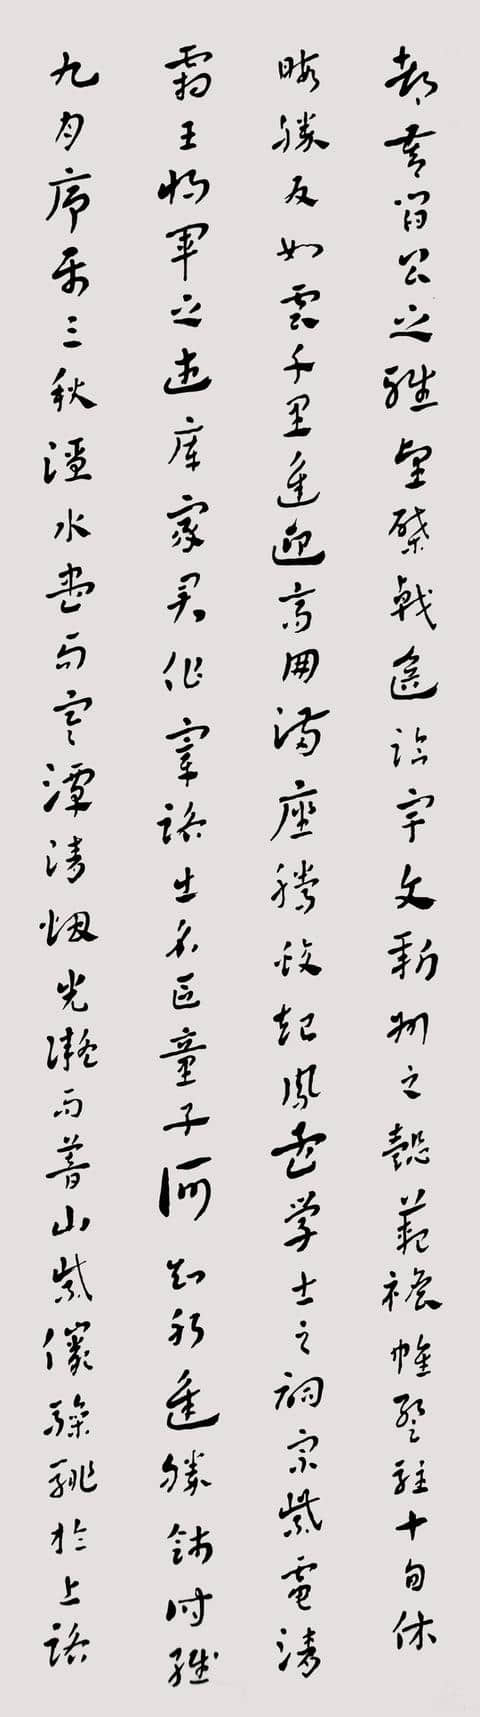 都督閻公之雅望棨戟遙臨宇文新州之懿範襜帷暫駐十旬休
暇勝友如雲千里逢迎高朋滿座騰蛟起鳳孟学士之詞宗紫電清
霜王將軍之武庫家君作宰路出名區童子何知躬逢勝餞時維
九月序屬三秋潦水盡而寒潭清烟光凝而暮山紫儼驂騑於上路